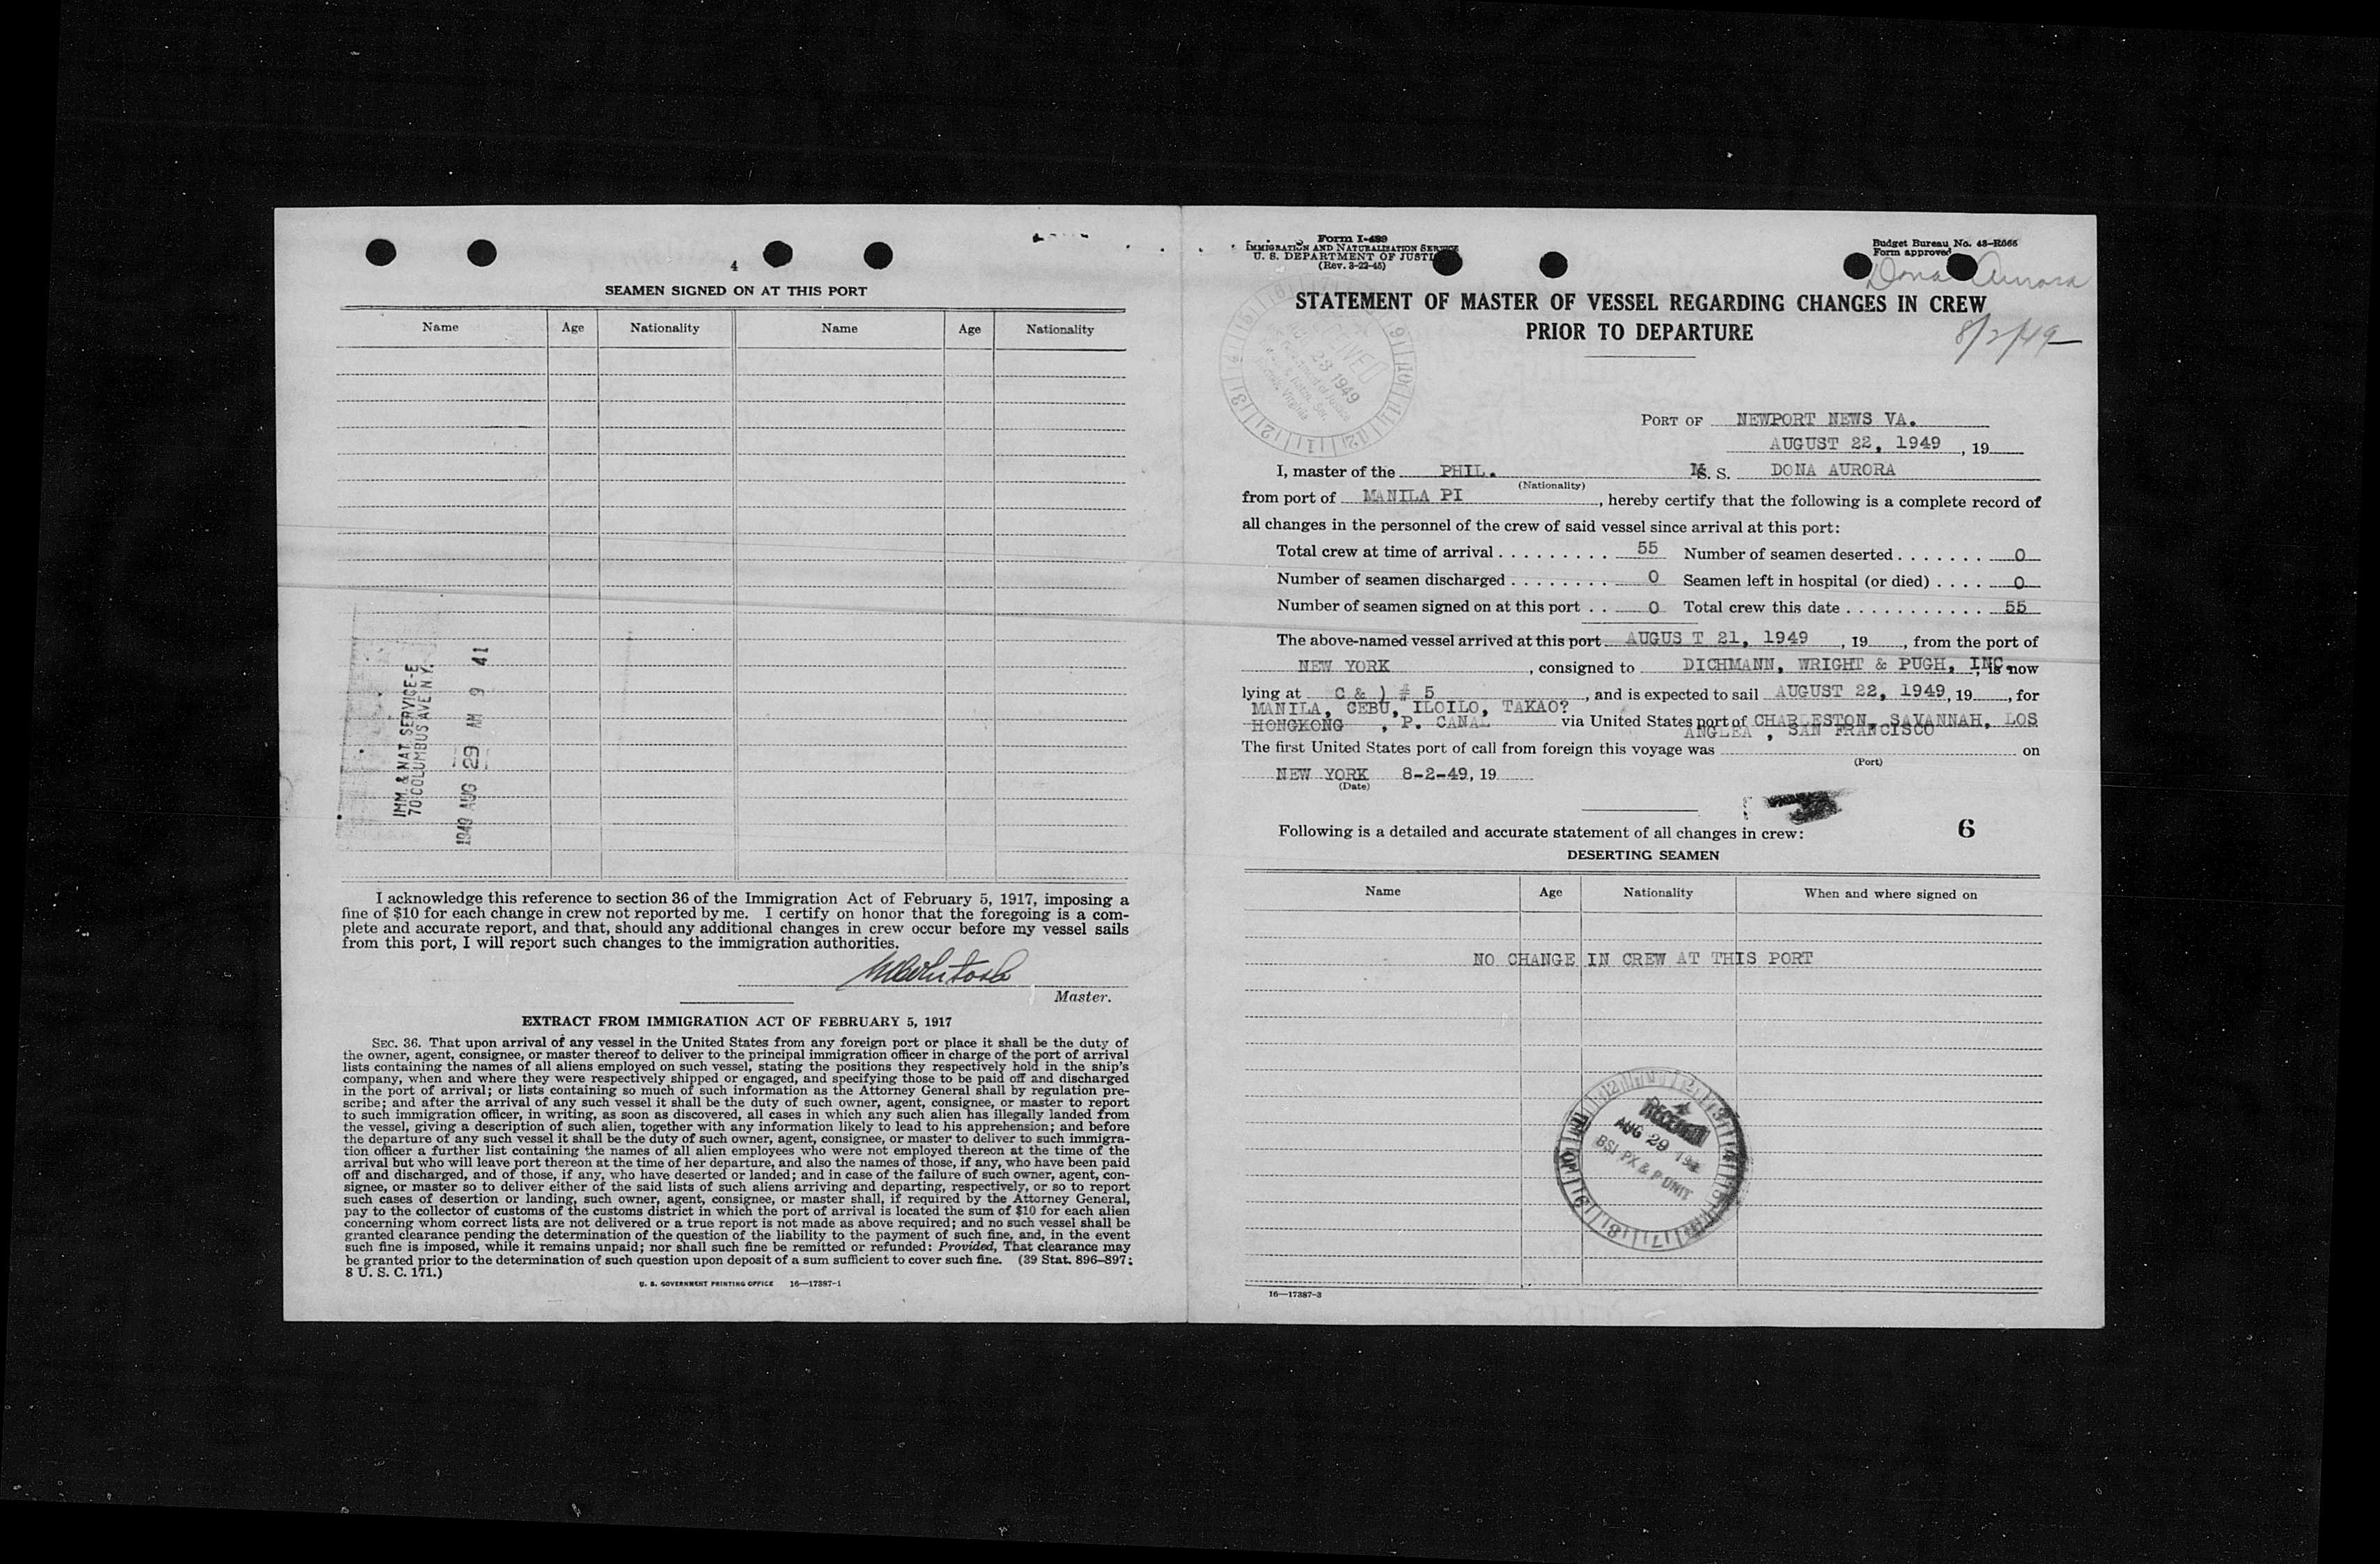 4
SEAMEN SIGNED ON AT THIS PORT
Name Age Nationality Name Age Nationality
IMM. & NAT. SERVICE-E
70 COLUMBUS AVE N.Y.
1949 AUG 29 AM 9 41
I acknowledge this reference to section 36 of the Immigration Act of February 5, 1917, imposing a
fine of $10 for each change in crew not reported by me. I certify on honor that the foregoing is a com-
plete and accurate report, and that, should any additional changes in crew occur before my vessel sails
from this port, I will report such changes to the immigration authorities.
Master.
EXTRACT FROM IMMIGRATION ACT OF FEBRUARY 5, 1917
SEC. 36. That upon arrival of any vessel in the United States from any foreign port or place it shall be the duty of
the owner, agent, consignee, or master thereof to deliver to the principal immigration officer in charge of the port of arrival
lists containing the names of all aliens employed on such vessel, stating the positions they respectively hold in the ship's
company, when and where they were respectively shipped or engaged, and specifying those to be paid off and discharged
in the port of arrival; or lists containing so much of such information as the Attorney General shall by regulation pre-
scribe; and after the arrival of any such vessel it shall be the duty of such owner, agent, consignee, or master to report
to such immigration officer, in writing, as soon as discovered, all cases in which any such alien has illegally landed from
the vessel, giving a description of such alien, together with any information likely to lead to his apprehension; and before
the departure of any such vessel it shall be the duty of such owner, agent, consignee, or master to deliver to such immigra-
tion officer a further list containing the names of all alien employees who were not employed thereon at the time of the
arrival but who will leave port thereon at the time of her departure, and also the names of those, if any, who have been paid
off and discharged, and of those, if any, who have deserted or landed; and in case of the failure of such owner, agent, con-
signee, or master so to deliver either of the said lists of such aliens arriving and departing, respectively, or so to report
such cases of desertion or landing, such owner, agent, consignee, or master shall, if required by the Attorney General,
pay to the collector of customs of the customs district in which the port of arrival is located the sum of $10 for each alien
concerning whom correct lists are not delivered or a true report is not made as above required; and no such vessel shall be
granted clearance pending the determination of the question of the liability to the payment of such fine, and, in the event
such fine is imposed, while it remains unpaid; nor shall such fine be remitted or refunded: Provided, That clearance may
be granted prior to the determination of such question upon deposit of a sum sufficient to cover such fine. (39 Stat. 896–897;
8 U. S. C. 171.)
U. S. GOVERNMENT PRINTING OFFICE 16—17387-1
Form I-489
IMMIGRATION AND NATURALIZATION SERVICE
U. S. DEPARTMENT OF JUSTI
(Rev. 3-22-45)
Budget Bureau No. 43-R066
Form approved
Dona Aurora
STATEMENT OF MASTER OF VESSEL REGARDING CHANGES IN CREW
PRIOR TO DEPARTURE
8/2/49
23 1949
Virginia
PORT OF NEWPORT NEWS VA.
AUGUST 22, 1949, 19
I, master of the PHIL. M. S. DONA AURORA
(Nationality)
from port of MANILA PI, hereby certify that the following is a complete record of
all changes in the personnel of the crew of said vessel since arrival at this port:
Total crew at time of arrival . . . . . . . . . 55 Number of seamen deserted . . . . . . . 0
Number of seamen discharged . . . . . . . . 0 Seamen left in hospital (or died) . . . . 0
Number of seamen signed on at this port . . 0 Total crew this date . . . . . . . . . . . . 55
The above-named vessel arrived at this port AUGUS T 21, 1949, 19, from the port of
NEW YORK, consigned to DICHMANN, WRIGHT & PUGH, INC., is now
lying at C & ) # 5, and is expected to sail AUGUST 22, 1949, 19, for
MANILA, CEBU, ILOILO, TAKAO?
HONGKONG, P. CANAL via United States port of CHARLESTON, SAVANNAH, LOS
ANGLEA , SAN FRANCISCO
The first United States port of call from foreign this voyage was on
(Port)
NEW YORK 8-2-49, 19
(Date)
Following is a detailed and accurate statement of all changes in crew: 6
DESERTING SEAMEN
Name Age Nationality When and where signed on
NO CHANGE IN CREW AT THIS PORT
RECEIVED
AUG 29
BSI PX & P UNIT
16—17387-3